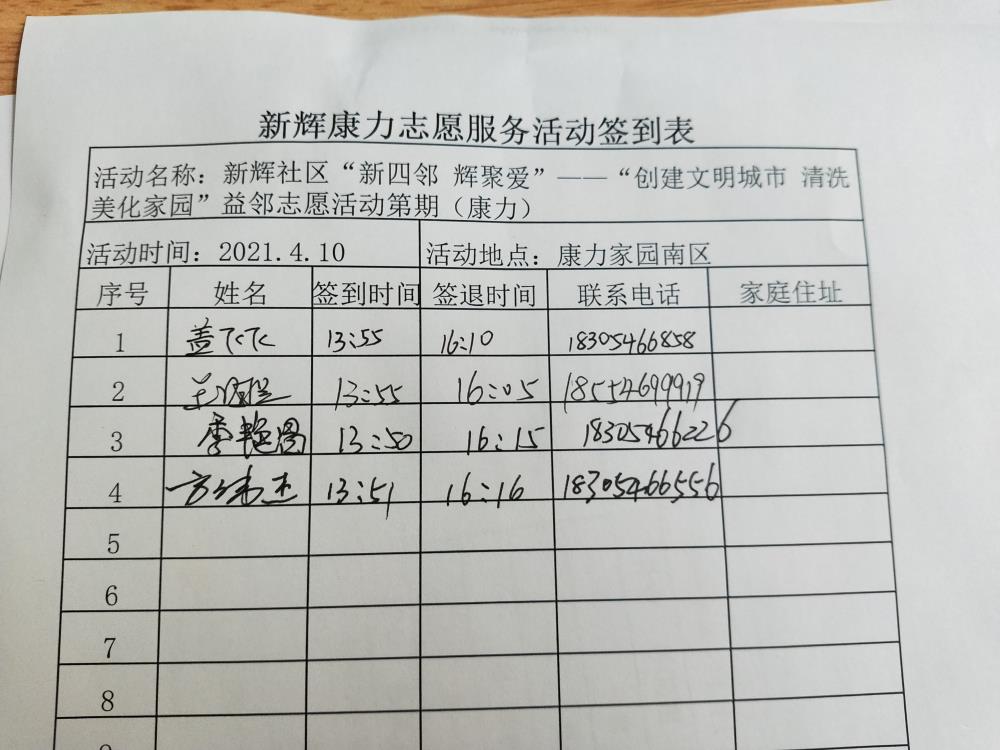 新辉康力志愿服务活动签到表
活动名称：新辉社区“新四邻 辉聚爱”——“创建文明城市 清洗
美化家园”益邻志愿活动第期（康力）
活动时间：2021.4.10 活动地点：康力家园南区
序号 姓名 签到时间 签退时间 联系电话 家庭住址
1 盖 13:55 16:10 18305466858
2 13:55 16:05 18554699919
3 季艳图 13:50 16:15 18305466226
4 方伟杰 13:51 16:16 18305466556
5
6
7
8